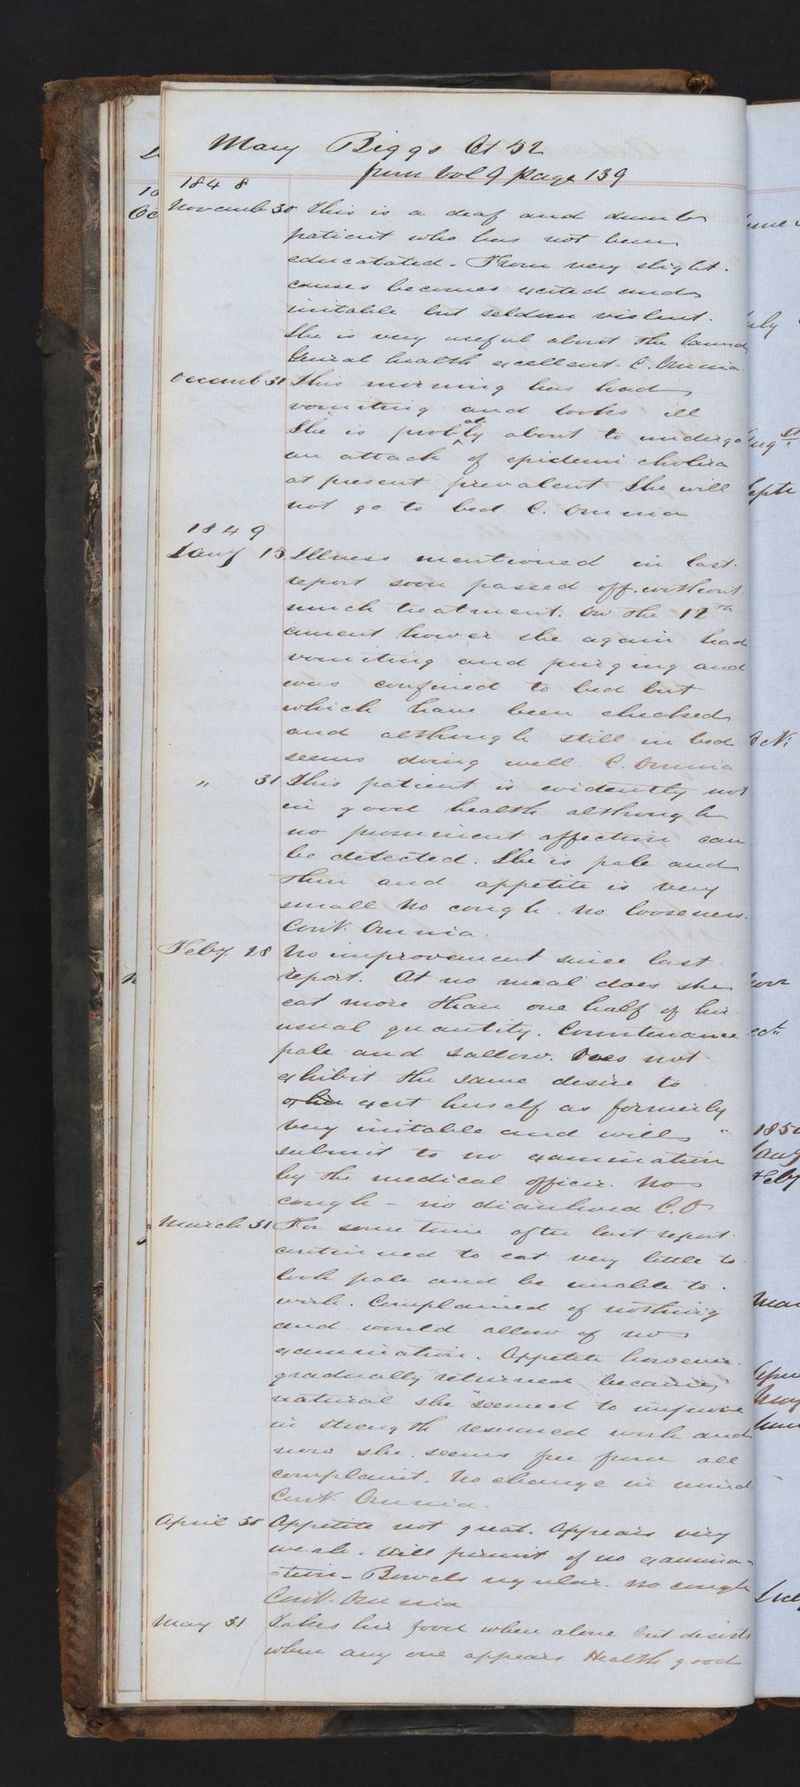 Mary Biggs Æt 52
from Vol 9 page 139
1848
November 30 This is a deaf and dumb
patient who has not been
educatated. From very slight
causes becomes excited and
irritable but seldom violent.
She is very useful about the
General health excellent. C. Omnia
Decemb 31 This morning has had
vomiting and looks ill
She is probably about to undergo
an attack of epidemic cholera
at present prevalent She will
not go to bed C. Omnia
1849
Jany 15 Illness mentioned in last
report soon passed off without
much treatment. On the 12th
current however she again had
vomiting and purging and
was confined to bed but
which have been checked
and although still in bed
seems doing well. C. Omnia
" 31 This patient is evidently not
in good health although
no prominent affection can
be detected. She is pale and
thin and appetite is very
small No cough. no looseness.
Cont. Omnia.
Feby 28 No improvement since last
report. At no meal does she
eat more than one half of her
usual quantity. Countenance
pale and sallow. Does not
exhibit the same desire to
exert herself as formerly
Very irritable and will
submit to no examination
by the medical officer. No
cough - no diarrhoea C. O
March 31 For some time after last report
continued to eat very little to
look pale and be unable to
work. Complained of nothing
and would allow of no
examination. Appetite however
gradually returned became
natural she seemed to improve
in strength resumed work and
now she seems free from all
complaint. No change in mind
Cont. Omnia.
April 30 Appetite not great. Appears very
weak. Will permit of no examina-
-tion - Bowels regular. No cough
Cont. Omnia
May 31 Takes her food when alone but desists
when any one appears Health good